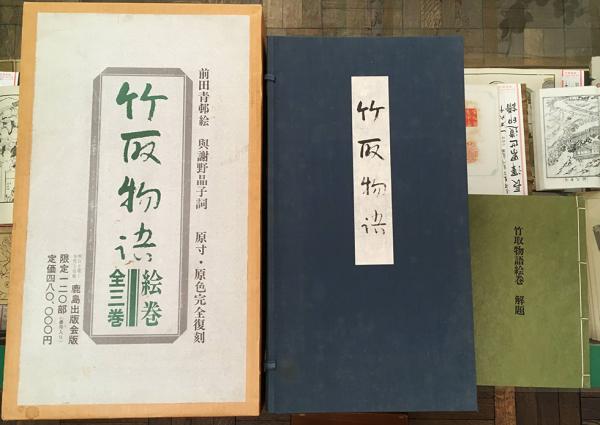 前田青邨絵 與謝野晶子詞 原寸・原色完全復刻
竹取物语
絵巻
全三巻
鹿島出版会版
限定一二〇部
定価四八〇、〇〇〇円
竹取物语
竹取物語絵巻 解題